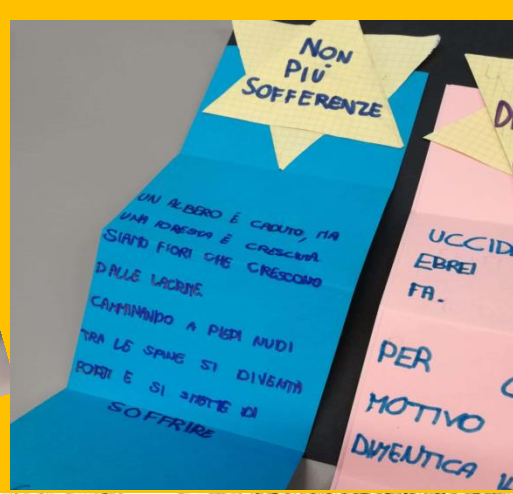 NON
PIU'
SOFFERENZE
UN ALBERO È CADUTO, MA
UNA FORESTA È CRESCIUTA
SIAMO FIORI CHE CRESCONO
DALLE LACRIME.
CAMMINANDO A PIEDI NUDI
TRA LE SPINE SI DIVENTA
FORTI E SI SMETTE DI
SOFFRIRE
UCCID
EBREI
FA.
PER
MOTIVO
DIMENTICA